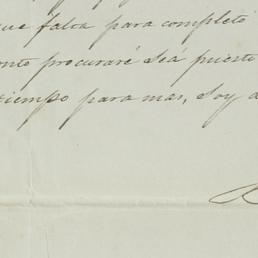 que falta para completo
procuraré seá puesto
tiempo para mas, soy